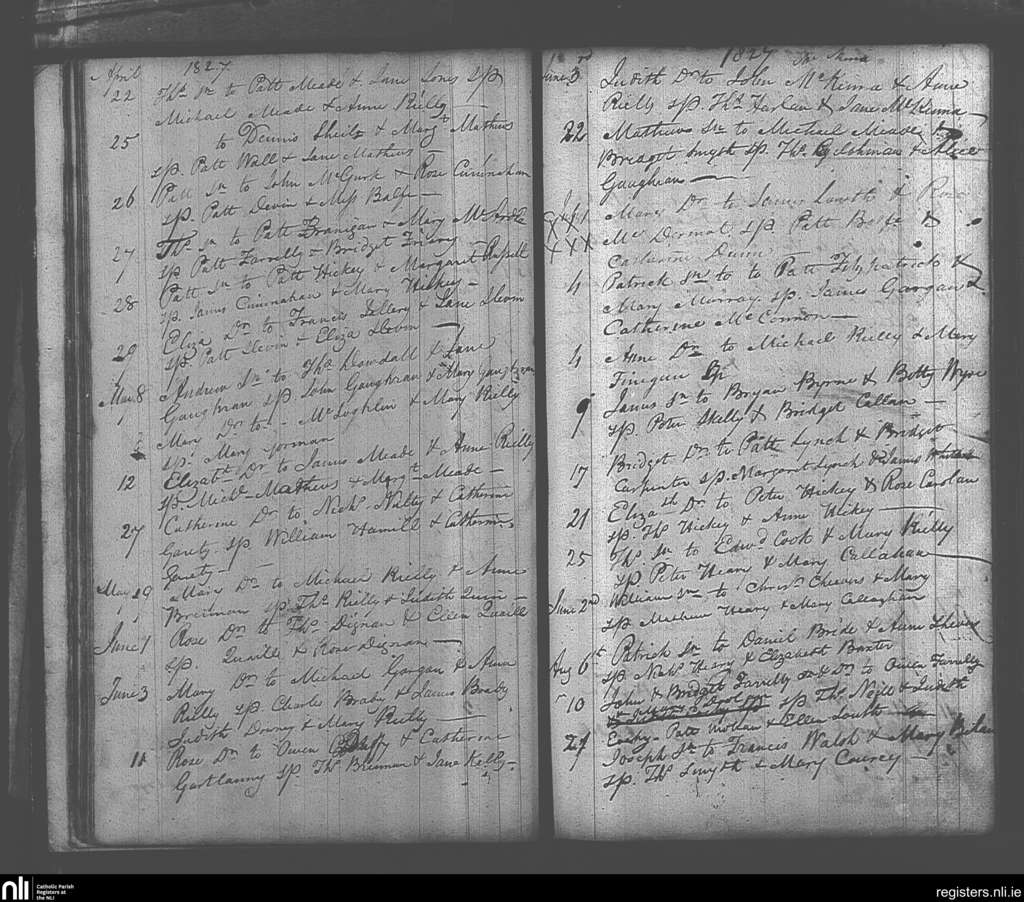 April 1827
22 Thos Sn to Patt Meade & Jane Jones sp
Michael Meade & Anne Reilly —
25 to Dennis Sheils & Margt Mathews
sp. Patt Wall & Jane Mathews —
26 Patt Sn to John McGurk & Rose Cuninahan
sp. Patt Devin & Miss Balfe —
27 Thos Sn to Patt Branigan & Mary McArdle
sp Patt Farrelly & Bridget Friary —
28 Patt Sn to Patt Hickey & Margaret Russell
sp. James Cuninahan & Mary Hickey —
29 Eliza Dr to Francis & Jane Slevin
sp. Patt Slevin & Eliza Slevin —
May 8 Andrew Sn to Thos Dowdall & Jane
Gaughran sp John Gaughran & Mary Gaughran
Mary Dr to - - McLoghlin & Mary Reilly
sp. Mary Gorman
12 Elizabt Dr to James Meade & Anne Reilly
sp. Michl Mathews & Margt Meade —
27 Catherine Dr to Nichs Nulty & Catherine
Garety. sp. William Hamill & Catherine
Garety —
May 19 Mary Dr to Michael Reilly & Anne
Brennan sp. Thos Reilly & Judith Quin —
June 1 Rose Dr to Thos Dignan & Ellen Quaill
sp. Quaill & Rose Dignan —
June 3 Mary Dr to Michael Gargan & Anne
Reilly sp. Charles Brabe & James Brady
Judith Downy & Mary Reilly —
11 Rose Dr to Owen Duffy & Catherine
Gartlanny sp. Thos Brennan & Jane Kelly —
1827
June 3 Judith Dr to John McKenna & Anne
Reilly sp. Thos Harlan & Jane McKenna —
22 Mathew Sn to Michael Meade &
Bridget Smyth sp. Thos & Alice
Gaughran —
Mary Dr to James Lowth & Rose
McDermot sp. Patt &
Catherine Dunn
4 Patrick Sn to to Patt Fitzpatrick &
Mary Murray sp. James Gargan &
Catherine McConnon —
4 Anne Dr to Michael Reilly & Mary
Finegan Sp
9 James Sn to Bryan Byrne & Betty Wyse
sp. Peter Skelly & Bridget Callan —
17 Bridget Dr to Patt Lynch & Bridget
Carpenter sp. Margaret Lynch & James
21 Elizath Dr to Peter Hickey & Rose Carolan
sp. Thos Hickey & Anne Hickey —
25 Thos Sn to Edwd Cook & Mary Reilly
sp. Peter Heary & Mary Callahan
June 2nd William Sn to Christr Cheevers & Mary
sp. Mathew Heary & Mary Callaghan
Aug 6th Patrick Sn to Daniel Bride & Anne
sp. Nichs Heary & Elizabeth Baxter
10 John & Bridget Farrelly Sn & Dr to Owen Farrelly
sp. Thos Neill & Judith
- Patt & Ellen Lowth
27 Joseph Sn to Francis Walsh & Mary
sp. Thos Smyth & Mary Coursey —
nli
Catholic Parish
Registers at
the NLI
registers.nli.ie